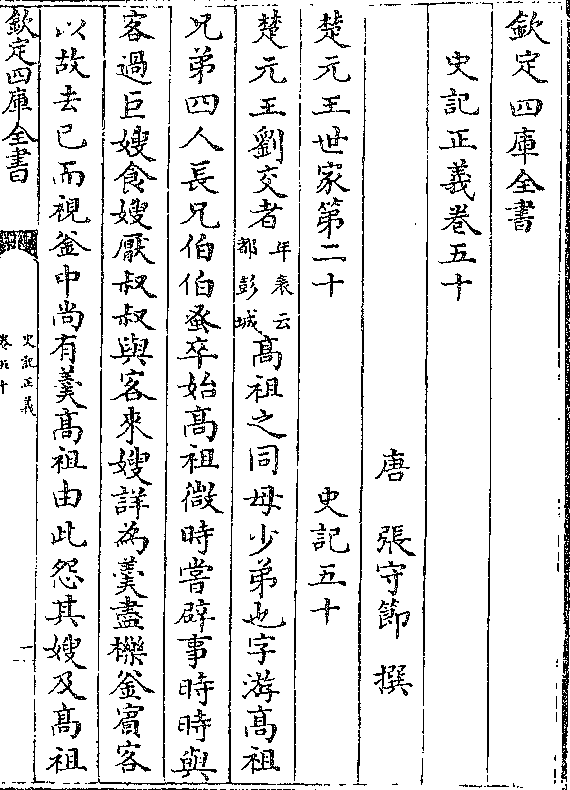 欽定四庫全書
史記正義卷五十
唐 張守節 撰
楚元王世家第二十 史記五十
楚元王劉交者年表云都彭城高祖之同母少弟也字游高祖
兄弟四人長兄伯伯蚤卒始高祖微時嘗辟事時時與
客過巨嫂食嫂厭叔叔與客來嫂詳為羹盡櫟釜賓客
以故去已而視釜中尚有羹高祖由此怨其嫂及高祖
欽定四庫全書
史記正義
卷五十
一